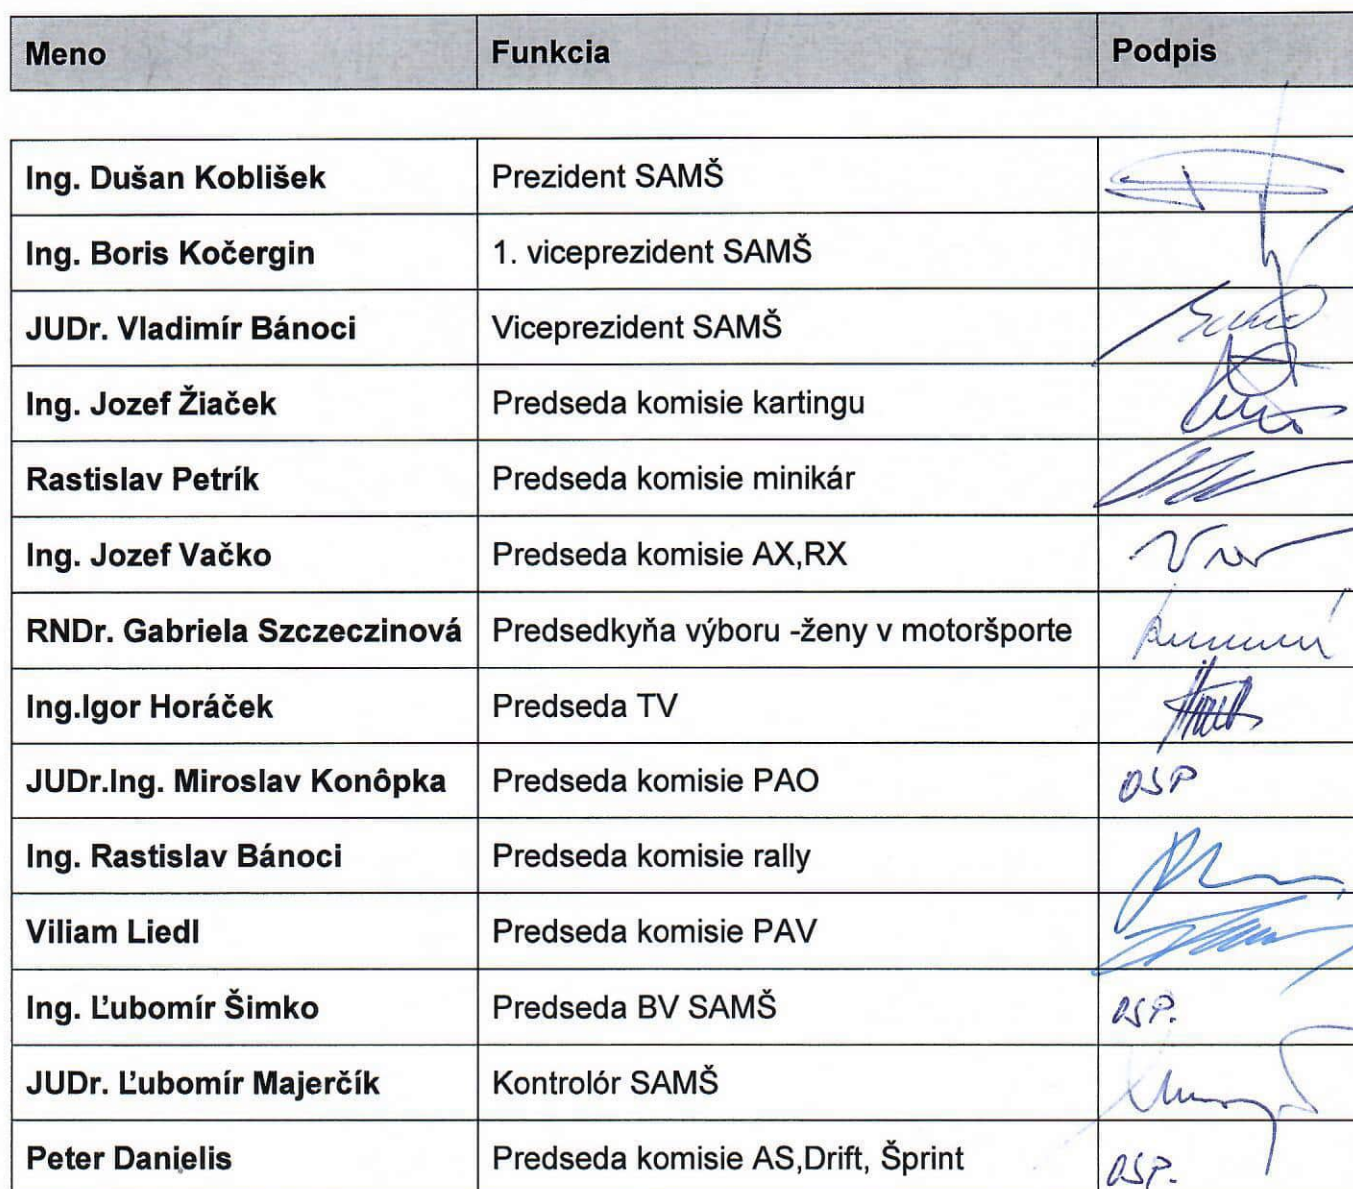 Meno Funkcia Podpis
Ing. Dušan Koblišek Prezident SAMŠ
Ing. Boris Kočergin 1. viceprezident SAMŠ
JUDr. Vladimír Bánoci Viceprezident SAMŠ
Ing. Jozef Žiaček Predseda komisie kartingu
Rastislav Petrík Predseda komisie minikár
Ing. Jozef Vačko Predseda komisie AX,RX
RNDr. Gabriela Szczeczinová Predsedkyňa výboru -ženy v motoršporte
Ing.Igor Horáček Predseda TV
JUDr.Ing. Miroslav Konôpka Predseda komisie PAO OSP
Ing. Rastislav Bánoci Predseda komisie rally
Viliam Liedl Predseda komisie PAV
Ing. Ľubomír Šimko Predseda BV SAMŠ OSP.
JUDr. Ľubomír Majerčík Kontrolór SAMŠ
Peter Danielis Predseda komisie AS,Drift, Šprint OSP.